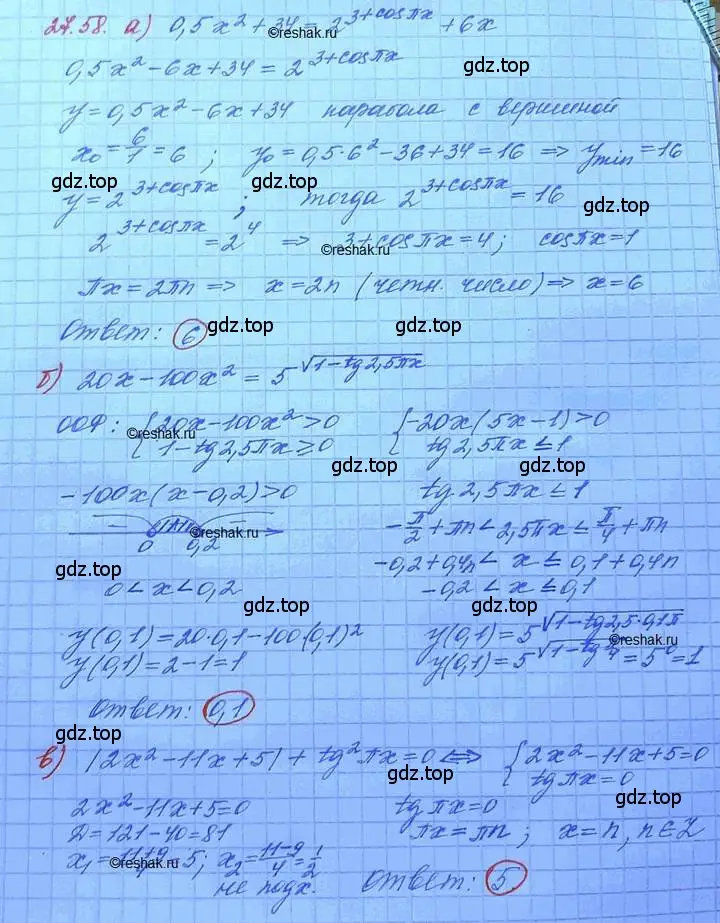 27.58. а) 0,5x² + 34 = 2^(3+cosπx) + 6x
©reshak.ru
0,5x² - 6x + 34 = 2^(3+cosπx)
y = 0,5x² - 6x + 34 парабола с вершиной
x₀ = 6/1 = 6 ; y₀ = 0,5·6² - 36 + 34 = 16 ⇒ y_min = 16
gdz.top gdz.top
y = 2^(3+cosπx) ; тогда 2^(3+cosπx) = 16
gdz.top
2^(3+cosπx) = 2⁴ ⇒ 3+cosπx = 4 ; cosπx = 1
©reshak.ru
πx = 2πn ⇒ x = 2n (четн. число) ⇒ x = 6
Ответ: 6
gdz.top gdz.top
б) 20x - 100x² = 5^√(1-tg2,5πx)
ООФ: { 20x - 100x² > 0 { -20x(5x-1) > 0
©reshak.ru
1 - tg2,5πx ≥ 0 tg2,5πx ≤ 1
gdz.top
-100x(x-0,2) > 0 tg2,5πx ≤ 1
- + -
©reshak.ru
0 0,2
-π/2 + πn < 2,5πx ≤ π/4 + πn
-0,2+0,4n < x ≤ 0,1+0,4n
gdz.top gdz.top
0 < x < 0,2 -0,2 < x ≤ 0,1
gdz.top
y(0,1) = 20·0,1 - 100·(0,1)² y(0,1) = 5^√(1-tg2,5·0,1π)
©reshak.ru
y(0,1) = 2-1 = 1 y(0,1) = 5^√(1-tg π/4) = 5⁰ = 1
gdz.top
Ответ: 0,1
gdz.top
в) |2x² - 11x + 5| + tg²πx = 0 ⇔ { 2x² - 11x + 5 = 0
gdz.top
tgπx = 0
2x² - 11x + 5 = 0 tgπx = 0
gdz.top
D = 121 - 40 = 81 πx = πn ; x = n, n∈Z
x₁ = (11+9)/4 = 5 ; x₂ = (11-9)/4 = 1/2
©reshak.ru
не подх. Ответ: 5.
gdz.top